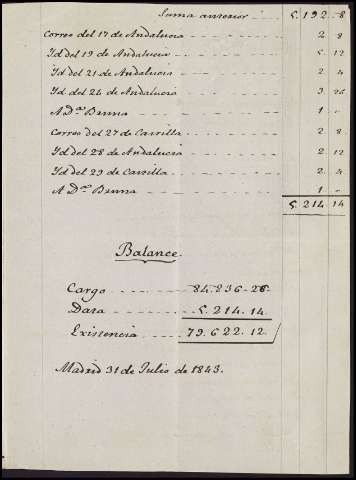 Suma anterior . . . 5.192 - 8
Correo del 17 de Andalucia - - - - 2 8
Yd del 19 de Andalucia - - - - 5 12
Yd del 21 de Andalucia - - - - 2 4
Yd del 24 de Andalucia - - - - 3 26
A Dn Bruna - - - - 1 -
Correo del 27 de Castilla - - - - 2 8
Yd del 28 de Andalucia - - - - 2 12
Yd del 29 de Castilla - - - - 2 4
A Dn Bruna - - - - 1 -
5.214 14
Balance.
Cargo - - - - 84.836 - 26
Data - - - - 5.214.14
Existencia - - - - 79.622.12
Madrid 31 de Julio de 1843.